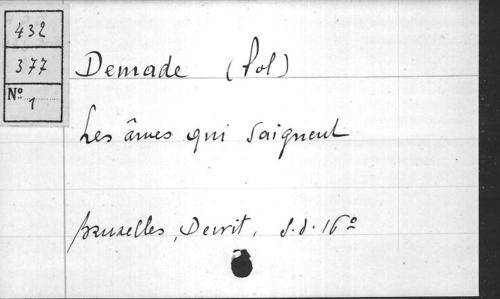 432
377
Nº 1
Demade (Pol)
Les âmes qui saignent
Bruxelles, Dewit, s.d. 16º